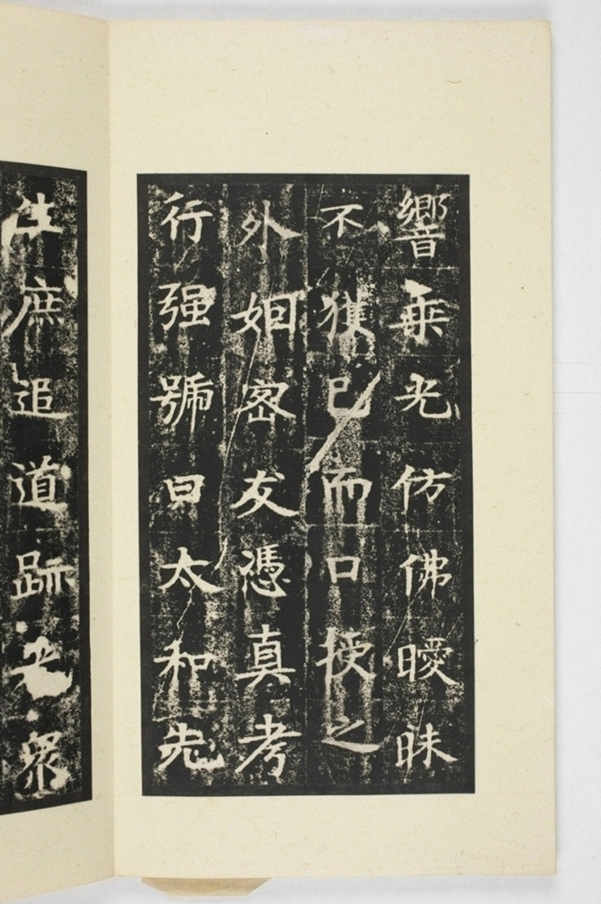 響乗光仿佛曖昧
不獲已而口授之
外姻密友憑真考
行强號曰太和先
生庶追道跡
衆